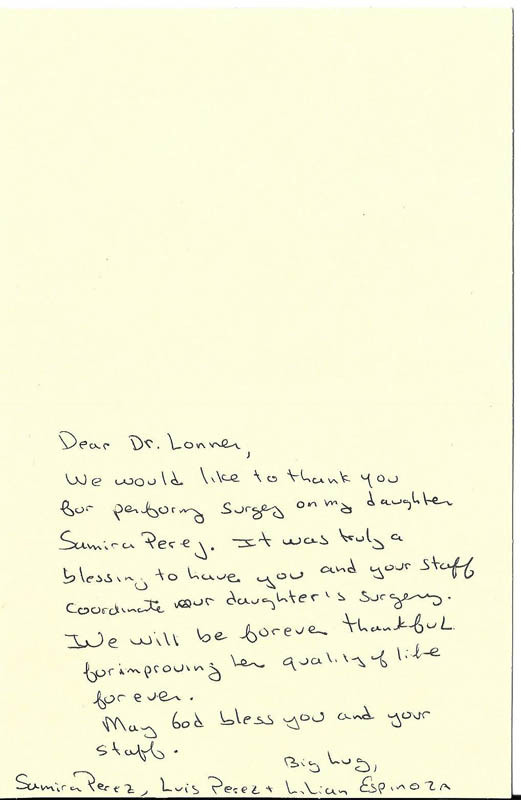 Dear Dr. Lonner,
We would like to thank you
for performing surgey on my daughter
Samira Perez. It was truly a
blessing to have you and your staff
coordinate our daughter's surgery.
We will be forever thankful
for improving her quality of life
forever.
May God bless you and your
staff.
Big hug,
Samira Perez, Luis Perez + Lilian Espinoza